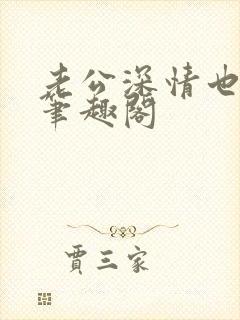 老公深情也
笔趣阁
贾三家